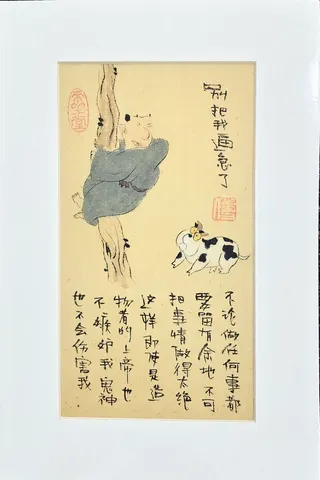 别把我逼急了
不论做任何事都
要留有余地不可
把事情做得太绝
这样即使是造
物者的上帝也
不嫉妒我鬼神
也不会伤害我